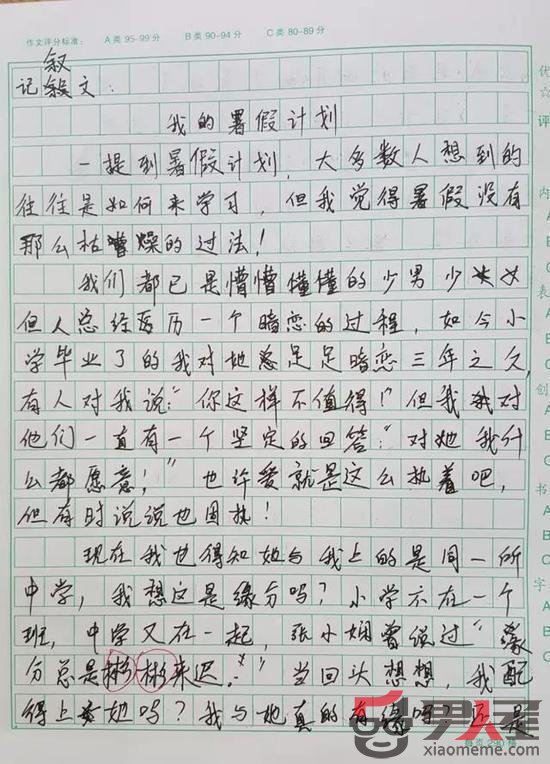 作文评分标准： A类 95-99分 B类 90-94分 C类 80-89分
叙
记 文：
我的暑假计划
一提到暑假计划，大多数人想到的
往往是如何来学习，但我觉得暑假没有
那么枯燥的过法！
我们都已是懵懵懂懂的少男少女
但人总经历一个暗恋的过程，如今小
学毕业了的我对她足足暗恋三年之久，
有人对我说：“你这样不值得！”但我对
他们一直有一个坚定的回答：“对她我什
么都愿意！”也许爱就是这么执着吧，
但有时说说也固执！
现在我也得知她与我上的是同一所
中学，我想这是缘分吗？小学不在一个
班，中学又在一起，张小娴曾说过“缘
分总是彬彬来迟。”当回头想想，我配
得上她吗？我与她真的有缘吗？还是
优
☆
评
内
A
B
C
表
A
B
C
创
A
B
C
书
A
B
C
字
A
B
C
男人圭
xiaomeme.com